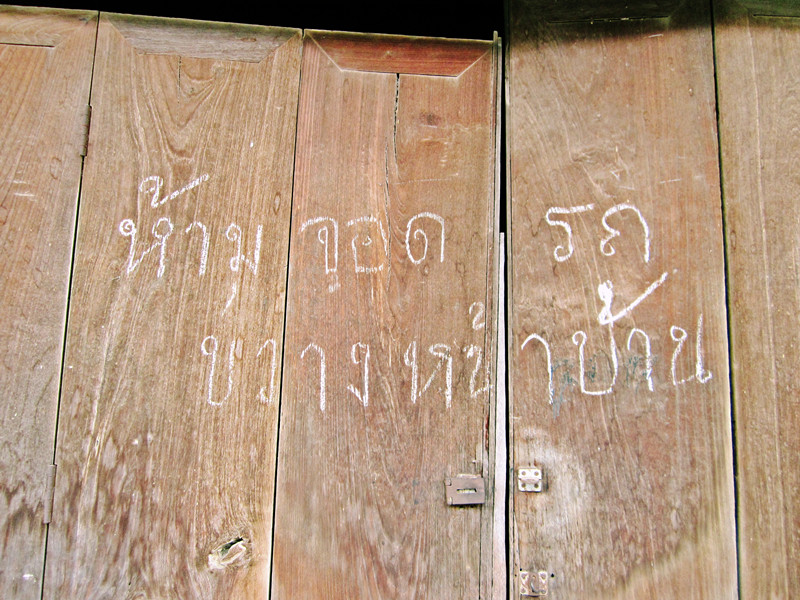 ห้ามจอด รถ
ขวางหน้าบ้าน